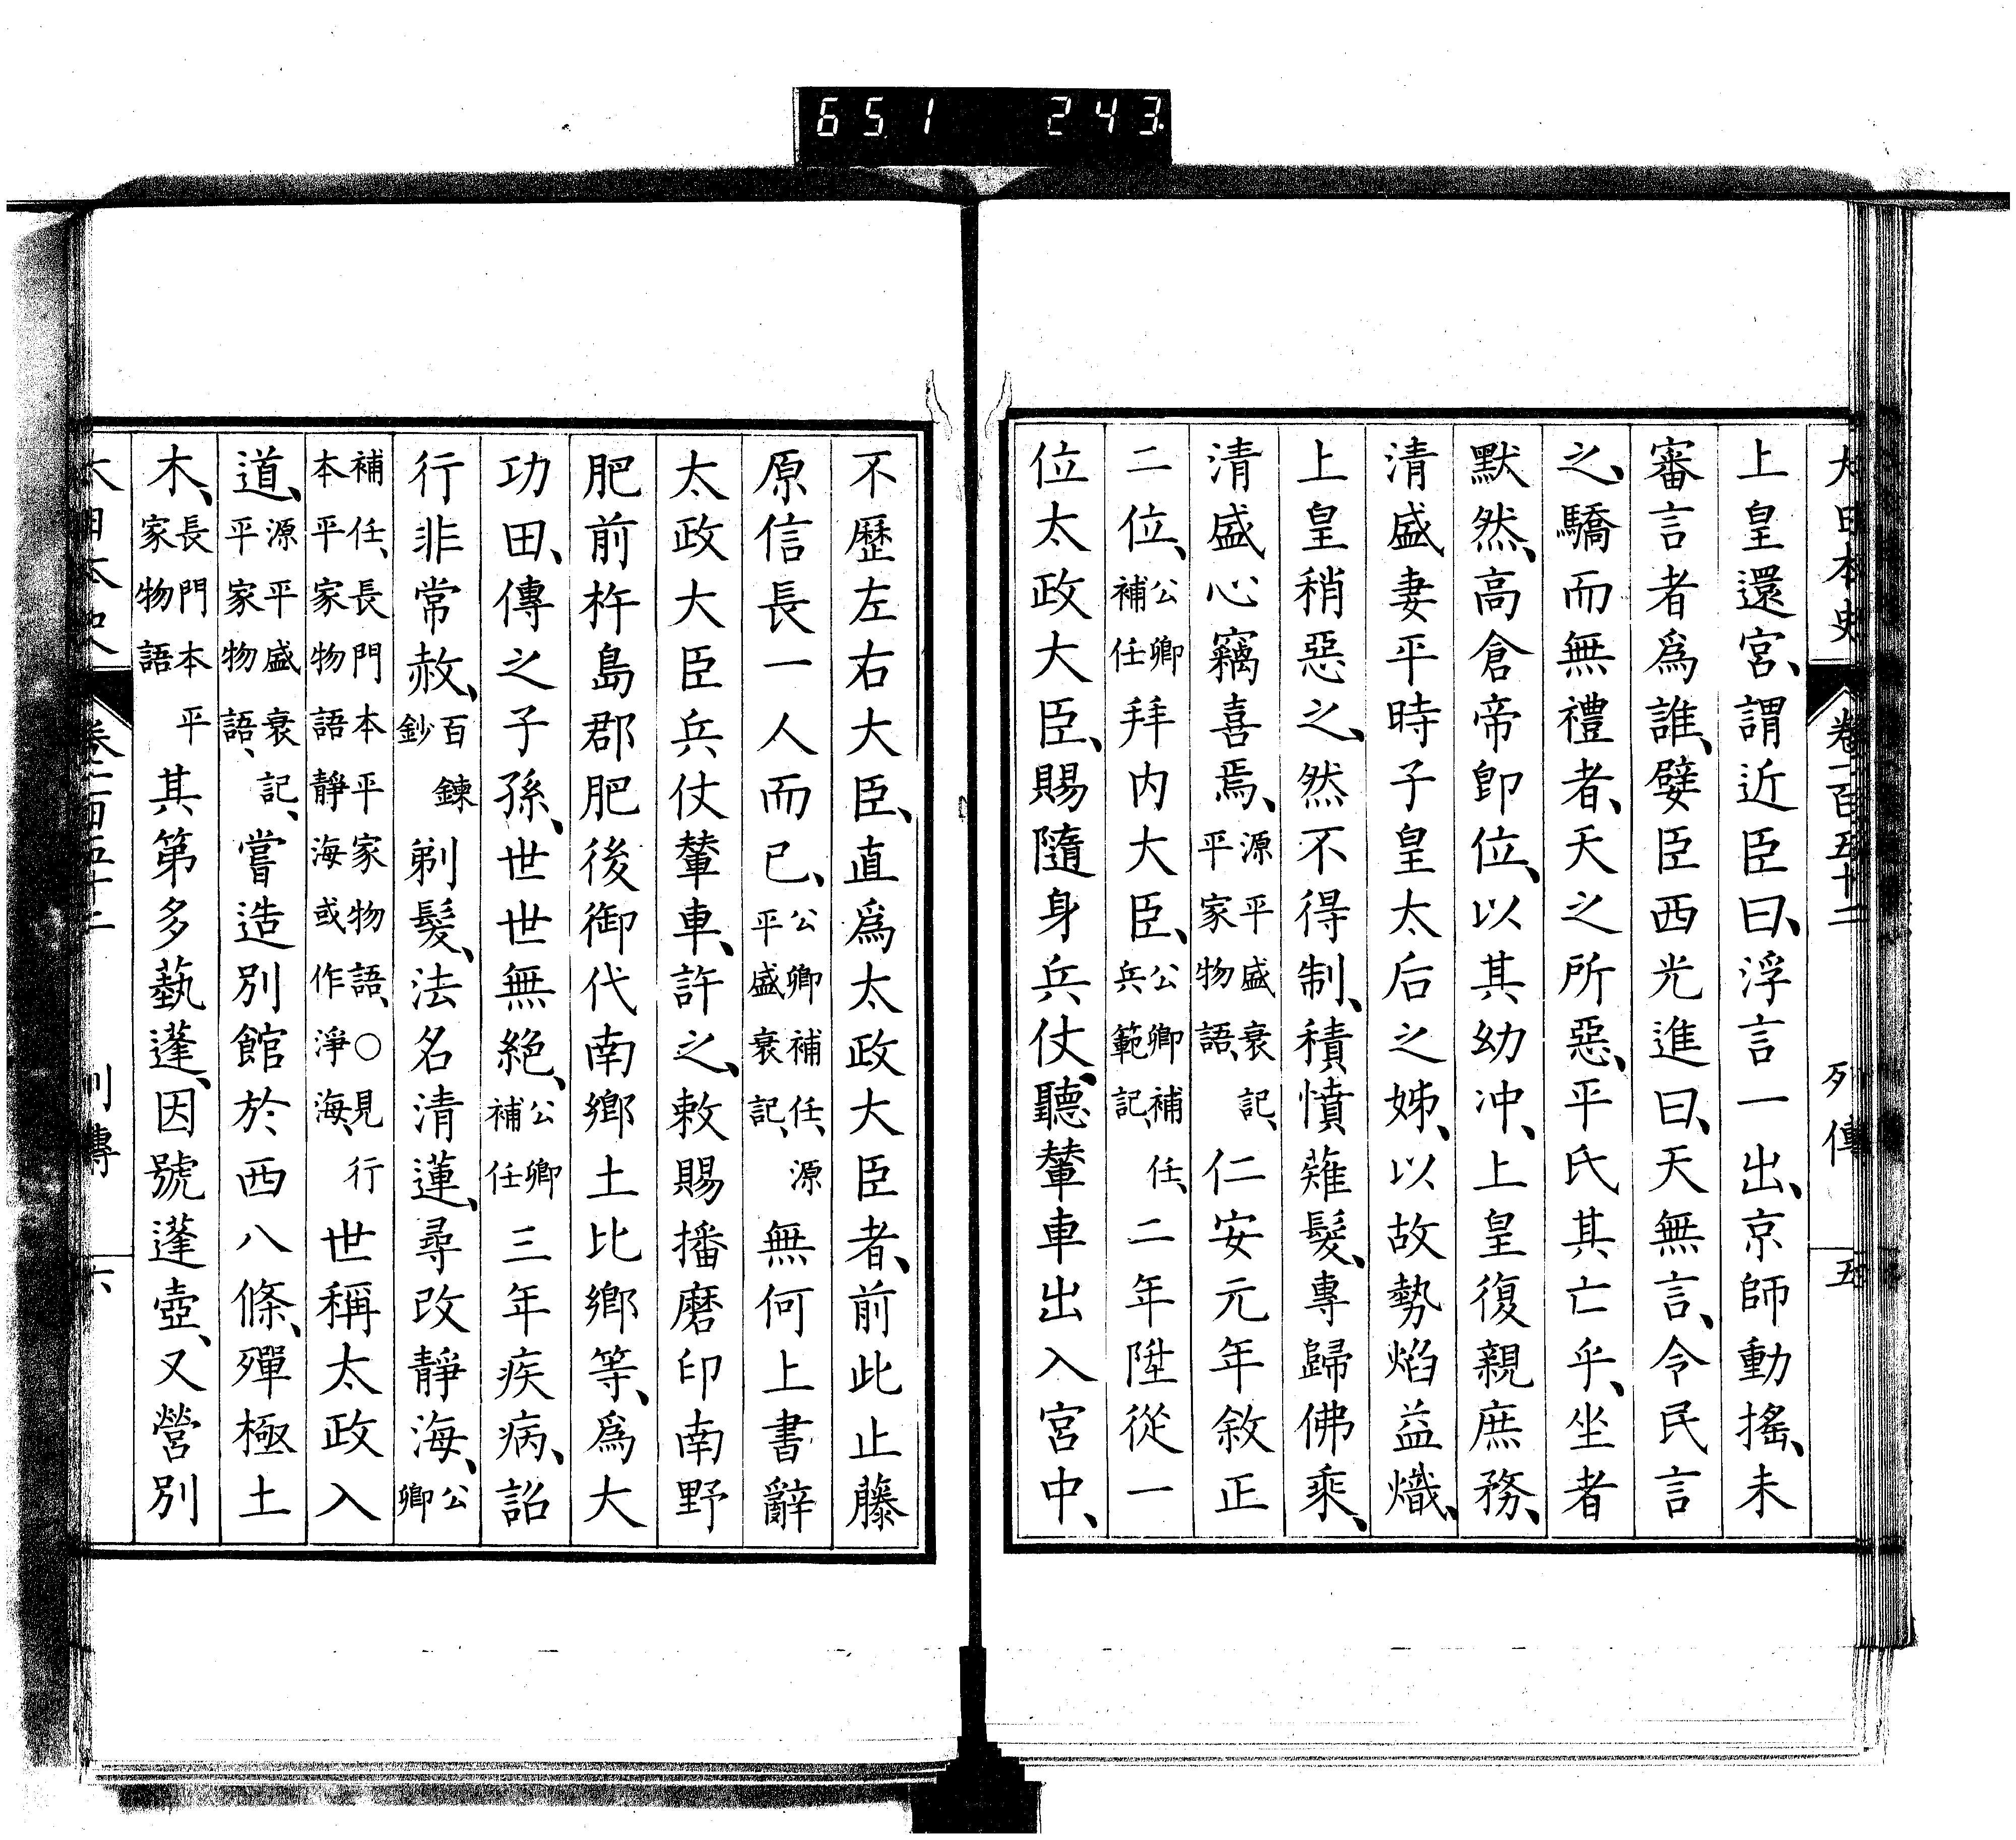 651 243
大日本史 卷一百五十二 列傳 五
上皇還宮、謂近臣曰、浮言一出、京師動搖、未
審言者爲誰、嬖臣西光進曰、天無言、令民言
之、驕而無禮者、天之所惡、平氏其亡乎、坐者
默然、高倉帝卽位、以其幼冲、上皇復親庶務、
清盛妻平時子皇太后之姊、以故勢焰益熾、
上皇稍惡之、然不得制、積憤薙髮、專歸佛乘、
清盛心竊喜焉、源平盛衰記、平家物語、仁安元年敘正
二位、公卿補任拜內大臣、公卿補任、兵範記、二年陞從一
位太政大臣、賜隨身兵仗、聽輦車出入宮中、
不歷左右大臣、直爲太政大臣者、前此止藤
原信長一人而已、公卿補任、源平盛衰記、無何上書辭
太政大臣兵仗輦車、許之、敕賜播磨印南野
肥前杵島郡肥後御代南鄉土比鄉等、爲大
功田、傳之子孫、世世無絕、公卿補任三年疾病、詔
行非常赦、百鍊鈔剃髮、法名清蓮、尋改靜海、公卿
補任、長門本平家物語、○見行本平家物語靜海或作淨海、世稱太政入
道、源平盛衰記、平家物語、嘗造別館於西八條、殫極土
木、長門本平家物語其第多蓺蓬、因號蓬壺、又營別
大日本史 卷一百五十二 列傳 六